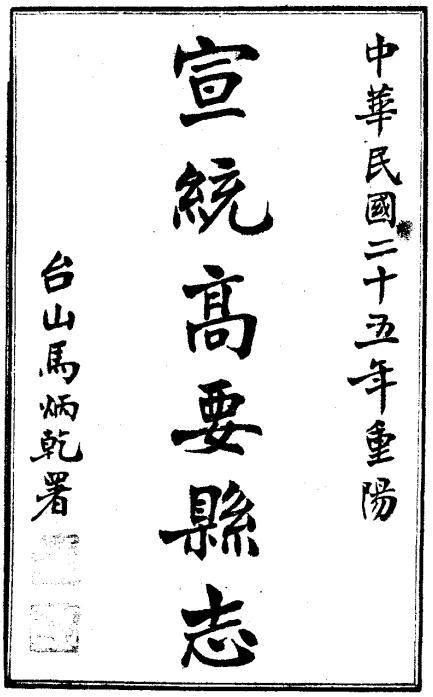 中華民國二十五年重陽
宣統高要縣志
台山馬炳乾署